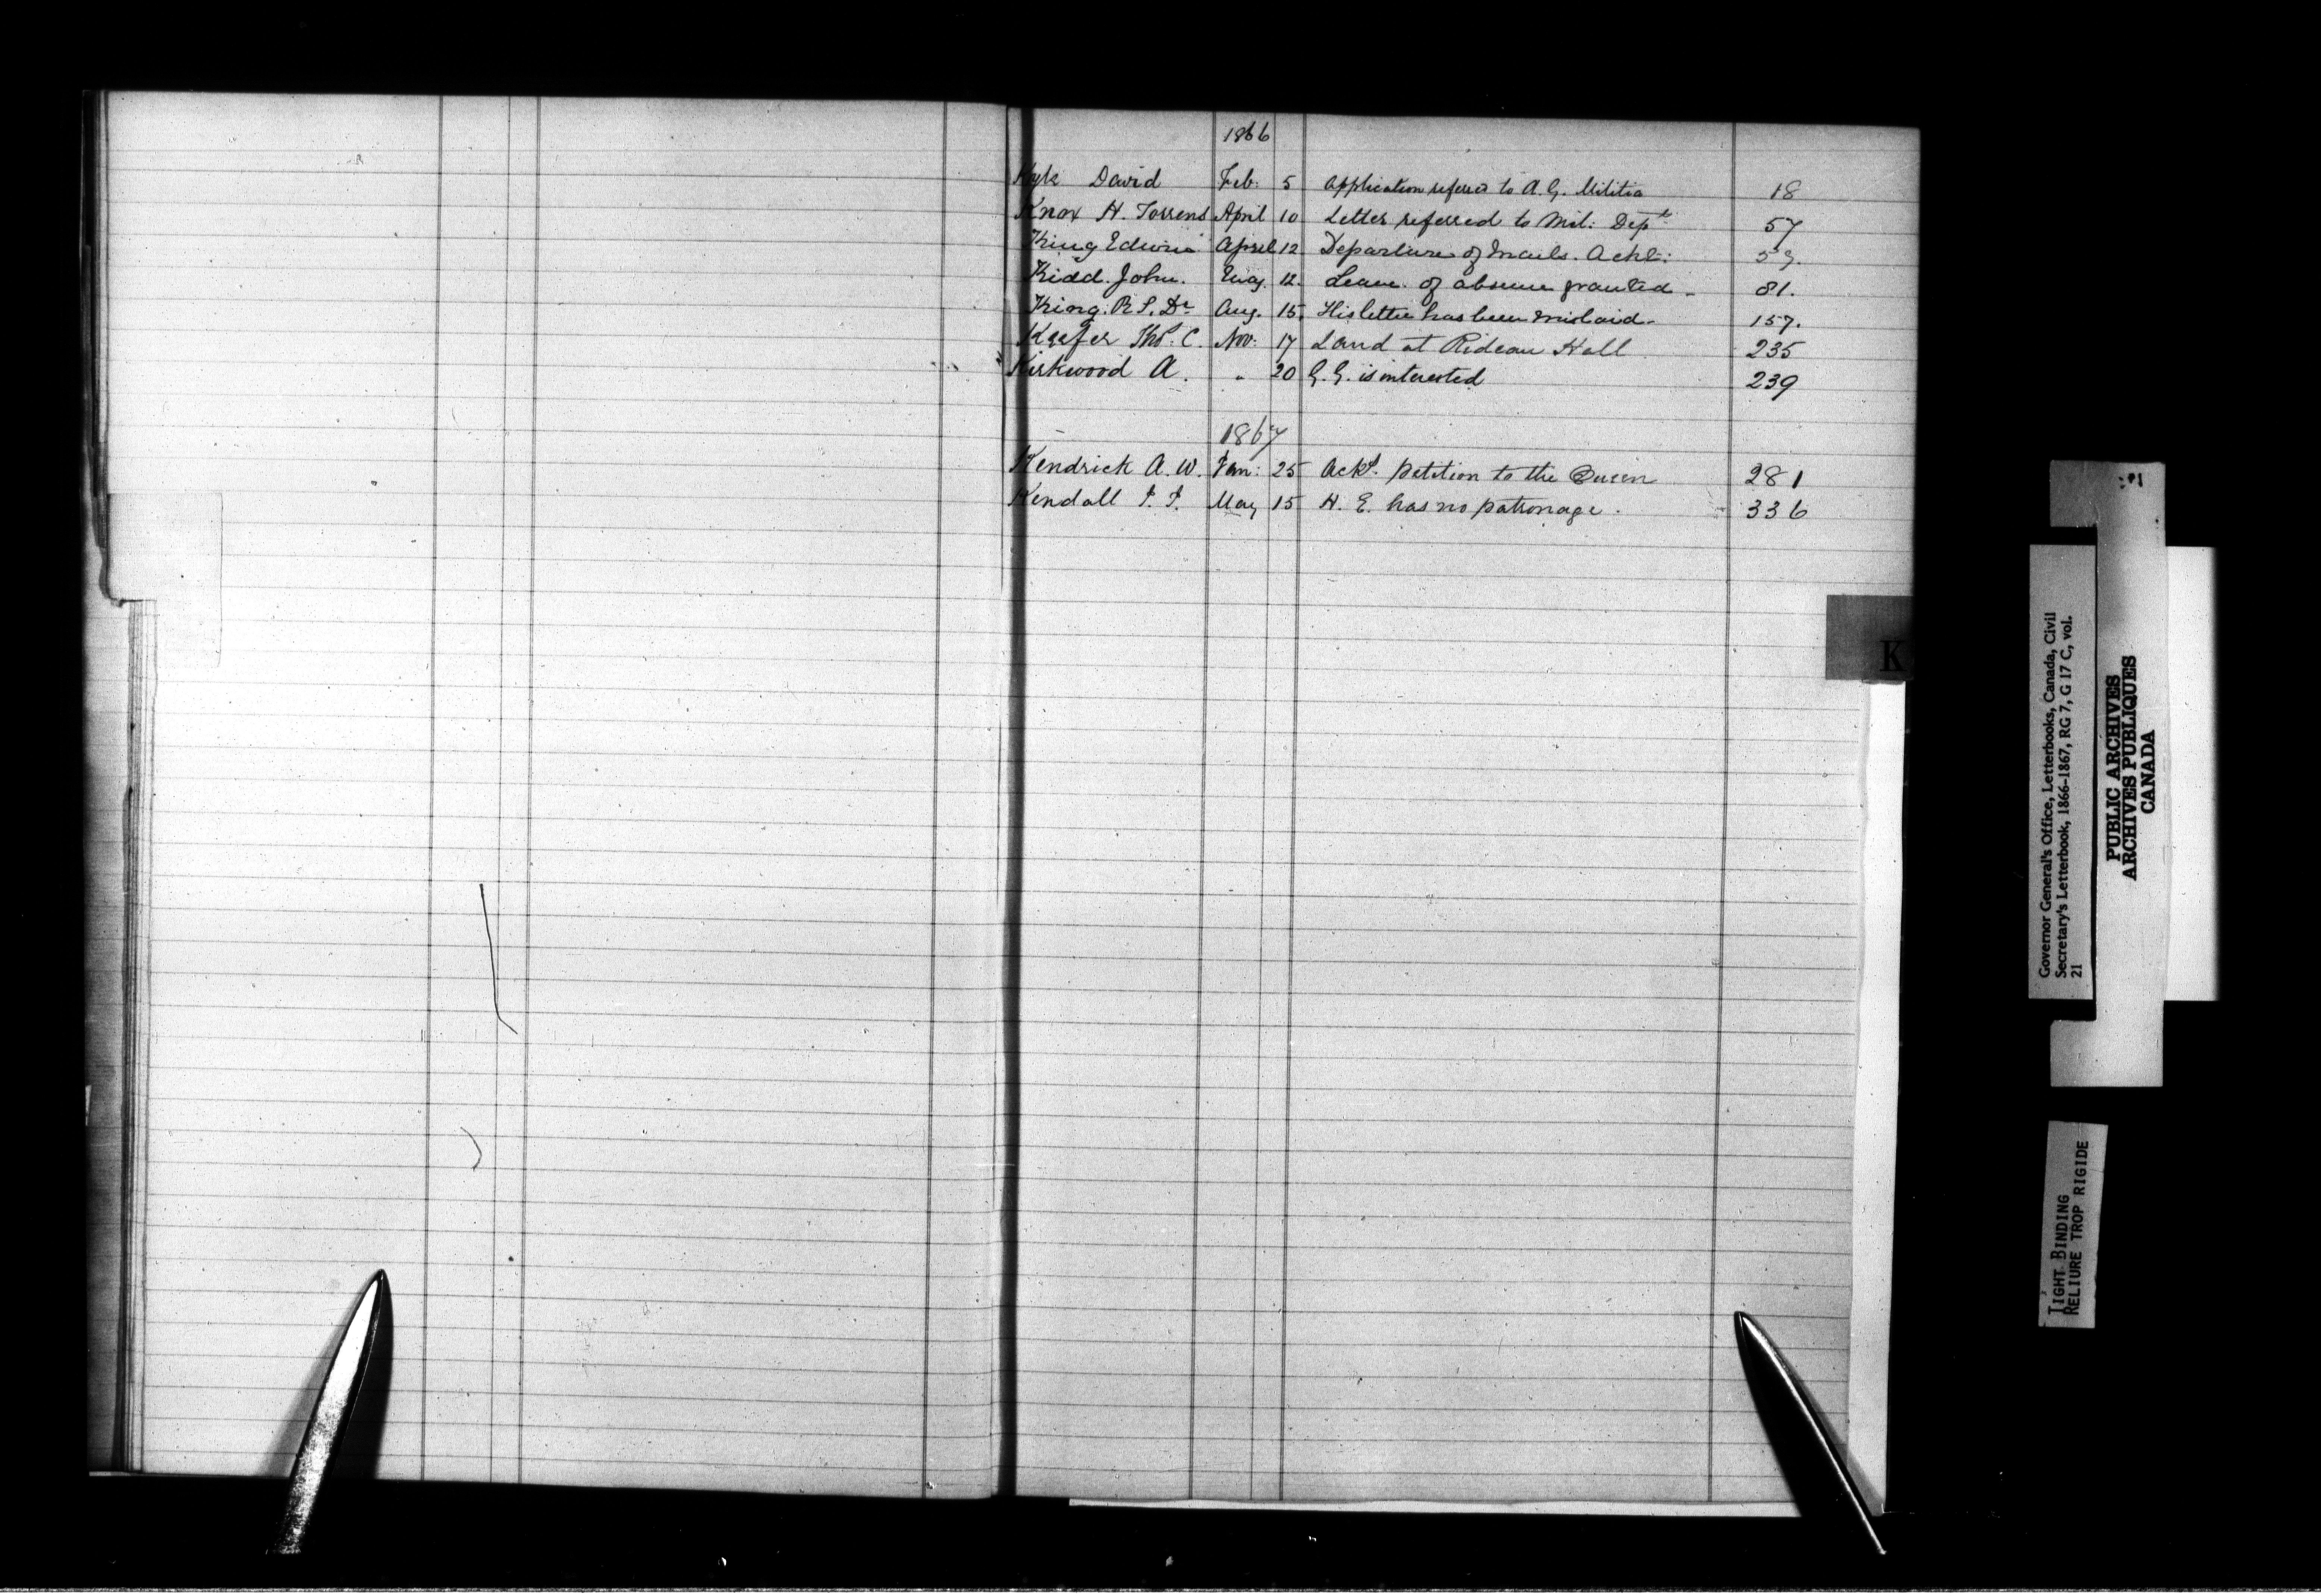 1866
Kyle David Feb: 5 Application referred to A. G. Militia 18
Knox H. Torrens April 10 Letter referred to Mil: Dept 57
King Edwin April 12 Departure of Mails. Ackd: 59.
Kidd. John. May. 12. Leave of absence granted 81.
King. R S. Dr Aug. 15. His letter has been mislaid 157.
Keefer Thos. C. Nov: 17 Land at Rideau Hall 235
Kirkwood A. " 20 G. G. is interested 239
1867
Kendrick A. W. Jan: 25 Ackd. petition to the Queen 281
Kendall May 15 H. E. has no patronage. 336
K
Governor General's Office, Letterbooks, Canada, Civil
Secretary's Letterbook, 1866-1867, RG 7, G 17 C, vol.
21
PUBLIC ARCHIVES
ARCHIVES PUBLIQUES
CANADA
TIGHT BINDING
RELIURE TROP RIGIDE